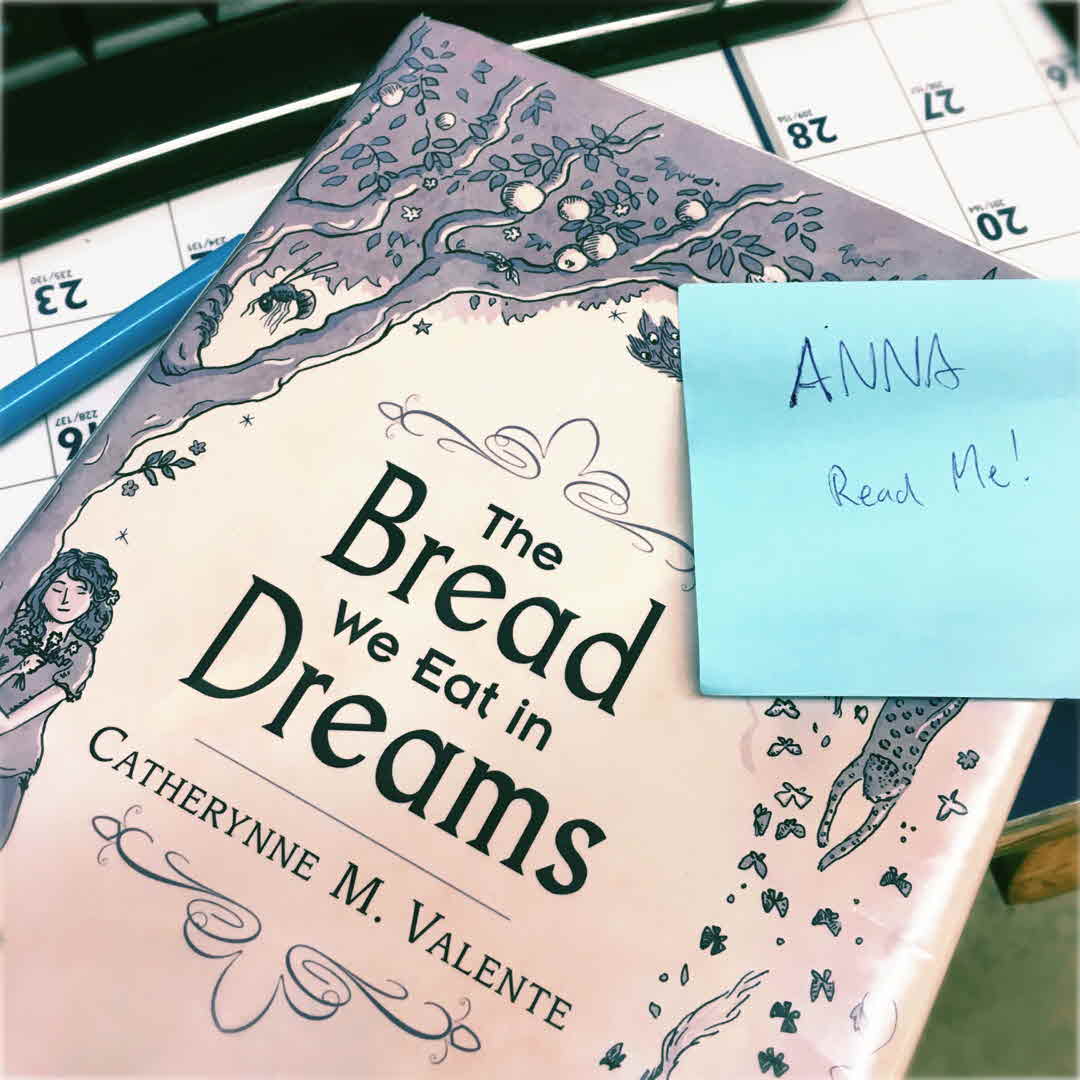 The
Bread
We Eat in
Dreams
CATHERYNNE M. VALENTE
ANNA
Read Me!
28
209/156
27
20
201/164
23
235/130
16
228/137
26